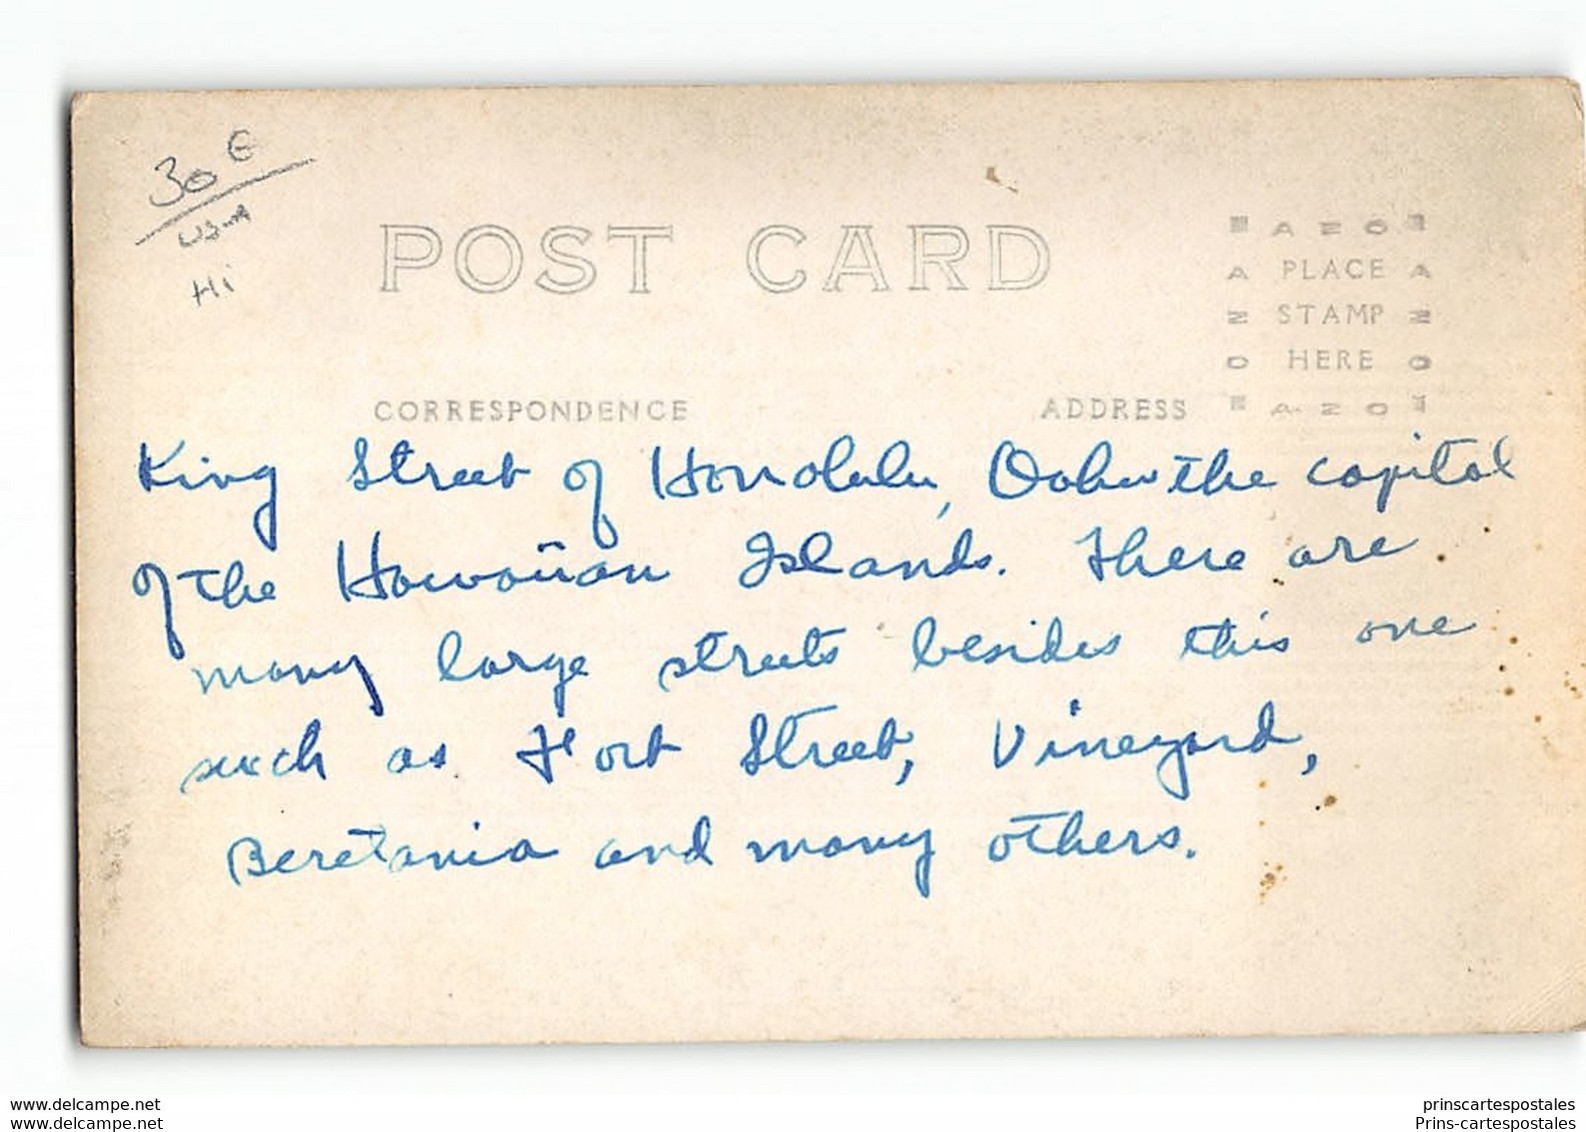 30 €
USA
Hi
POST CARD
AZO
PLACE
STAMP
HERE
AZO
AZO
AZO
CORRESPONDENCE
ADDRESS
King Street of Honolulu, Oahu the capital
of the Hawaiian Islands. There are
many large streets besides this one
such as Fort Street, Vineyard,
Beretania and many others.
www.delcampe.net
prinscartespostales
www.delcampe.net
Prins-cartespostales